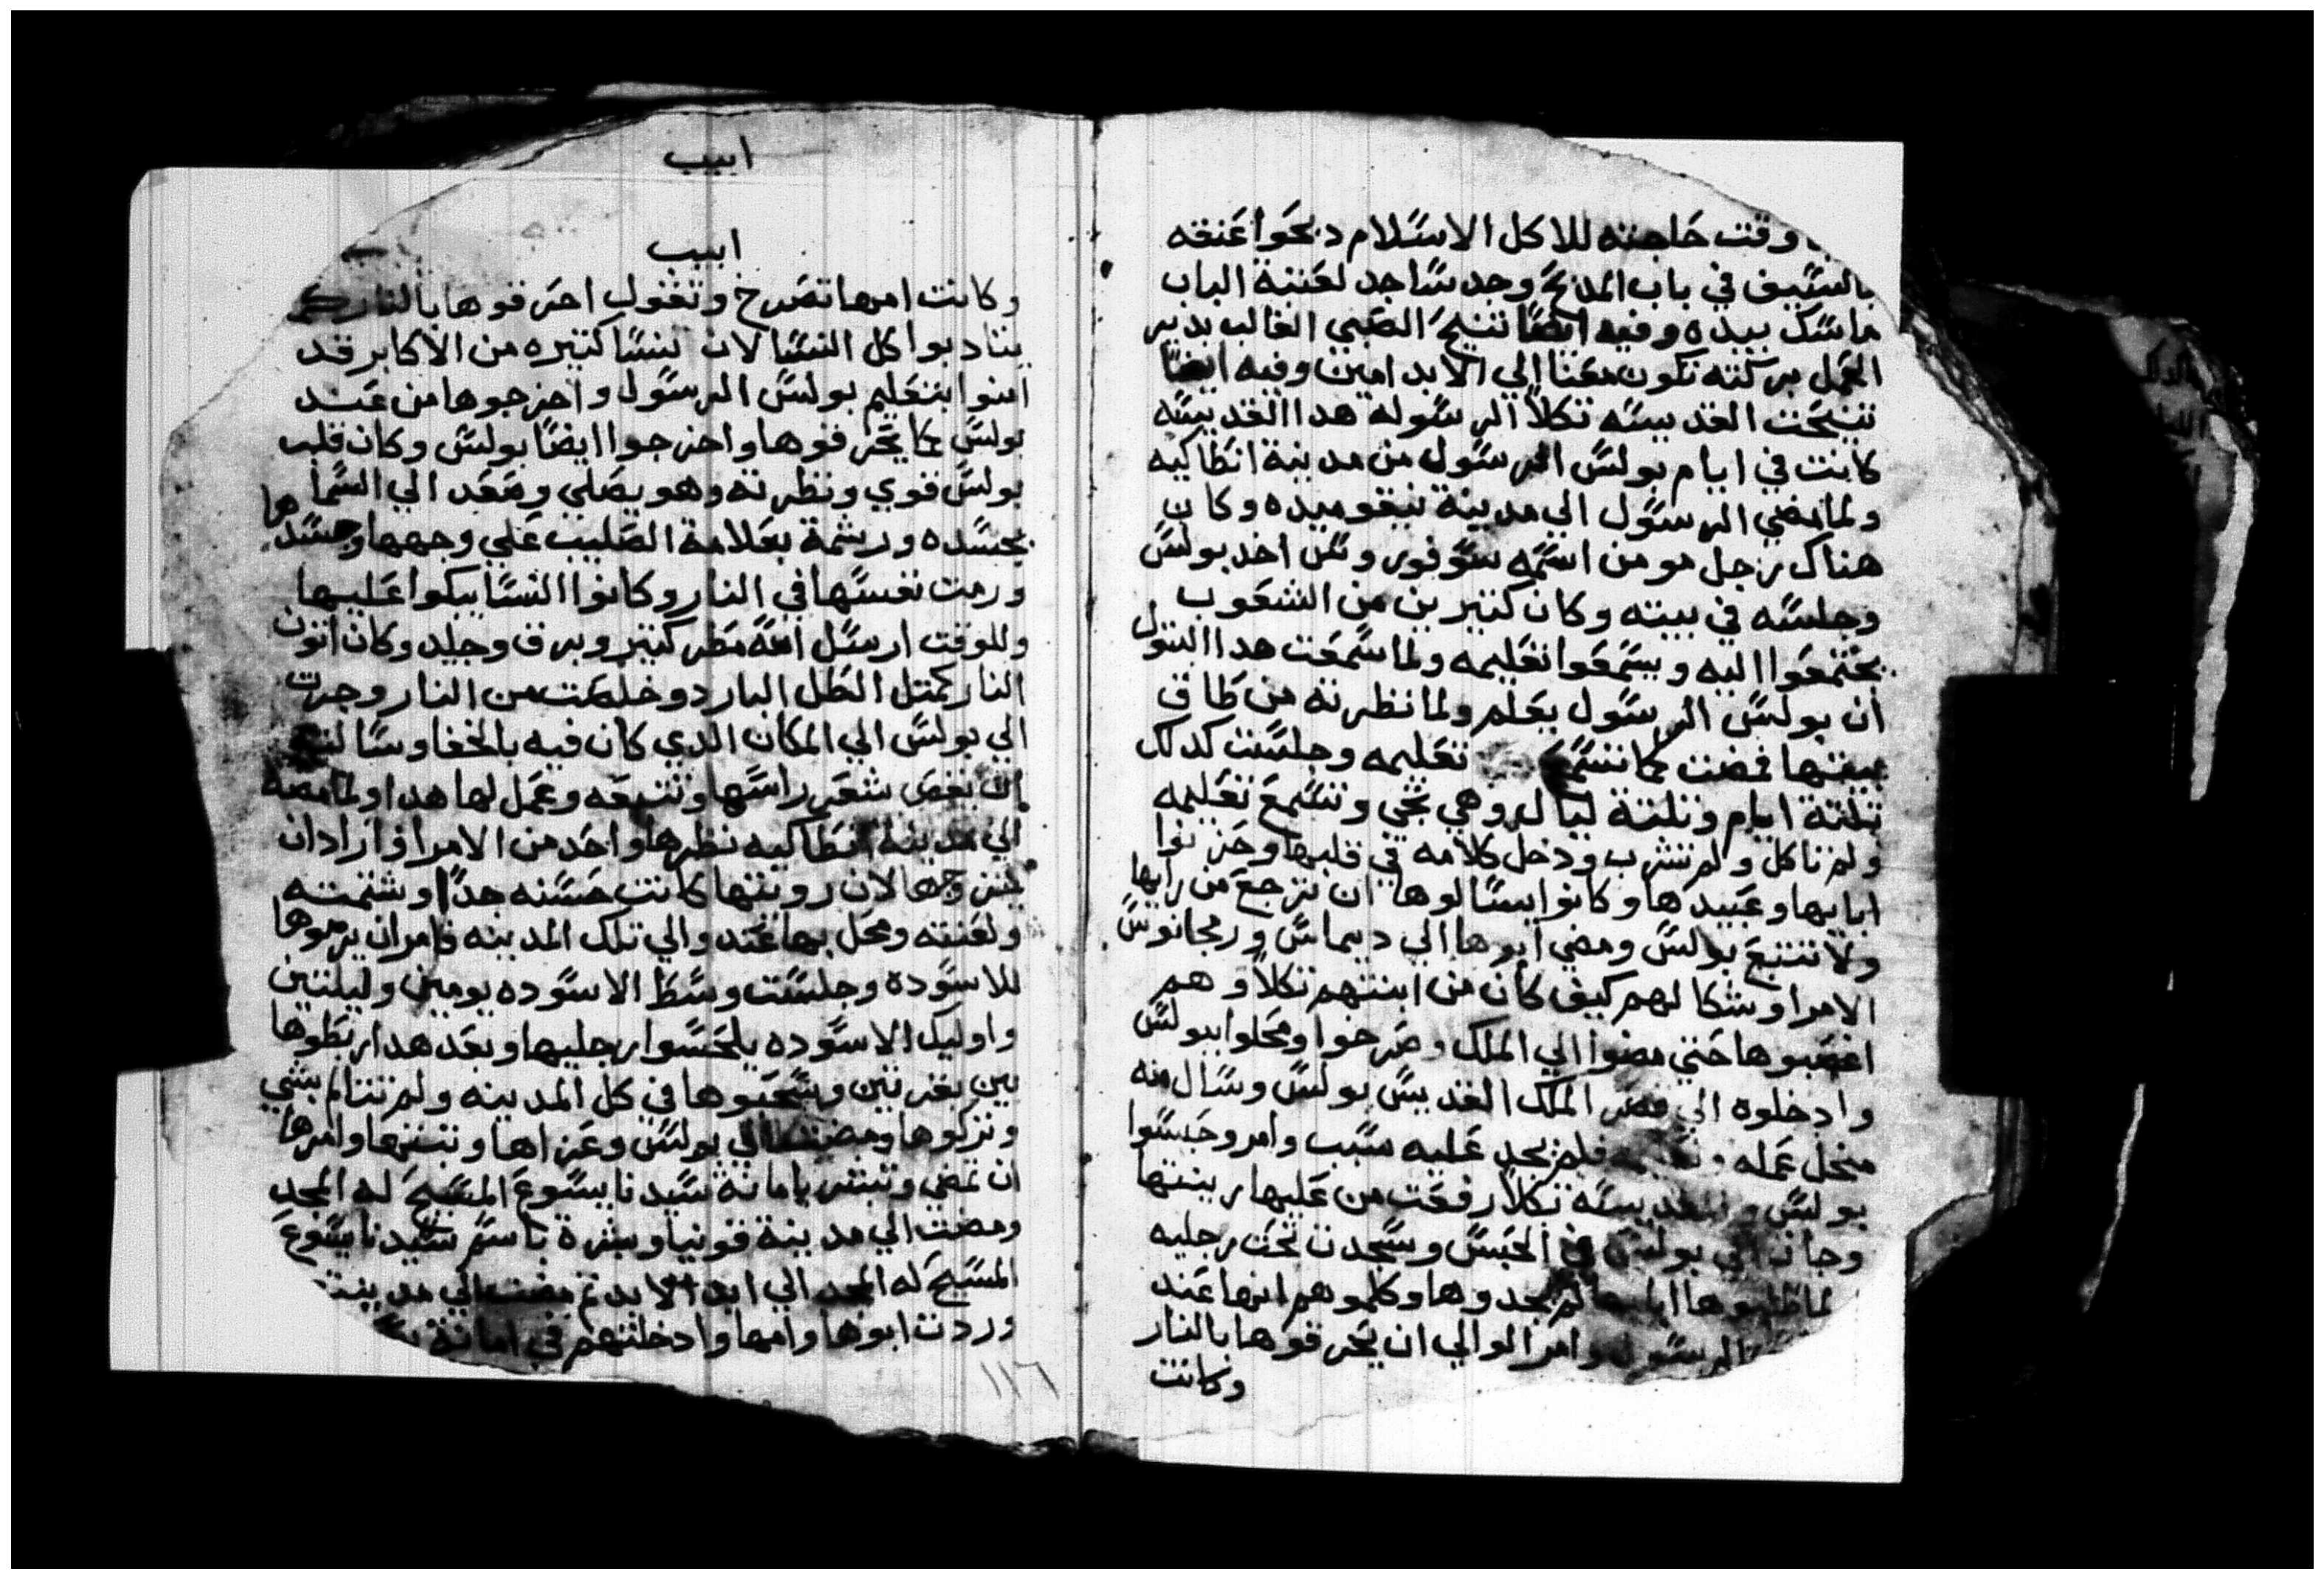 وقت حاجته للاكل الاسلام دبحوا عنقه
بالسيف في باب المذبح وجد ساجد لعتبة الباب
ماسك بيده وفيه ايضا تنيح الصبي الغالب بدير
العمل بركته تكون معنا الي الابد امين وفيه ايضا
تنيحت القديسه تكلا الرسوله هدا القديسه
كانت في ايام بولس الرسول من مدينة انطاكيه
ولما مضي الرسول الي مدينة نيقوميده وكان
هناك رجل مومن اسمه سوفورونس اخد بولس
وجلسه في بيته وكان كتيرين من الشعوب
يجتمعوا اليه ويسمعوا تعليمه ولما سمعت هدا البتول
ان بولس الرسول يعلم ولما نظرته من طاق
بيتها فمضت كما تسمع تعليمه وجلست كدلك
تلتة ايام وتلتة ليال وهي تجي وتسمع تعليمه
ولم تاكل ولم تشرب ودخل كلامه في قلبها وحزنوا
ابايها وعبيدها وكانوا يسالوها ان ترجع من رايها
ولا تتبع بولس ومضي ابوها الي ديماس ورمجانوس
الامرا وشكا لهم كيف كان من ابنتهم تكلا وهم
اغضبوها حتي مضوا الي الملك وصرخوا ومحلوا ببولس
وادخلوه الي قصر الملك القديس بولس وسال منه
منجل عمله فلم يجد عليه سبب وامر وحبسوا
بولس والقديسه تكلا رفعت من عليها زينتها
وجات الي بولس في الحبس وسجدت تحت رجليه
لما طلبوها ابايها لم يجدوها وكلموهم انها عند
الرسول وامر الوالي ان يحرقوها بالنار
وكانت
ابيب
ابيب
وكانت امها تصرخ وتقول احرقوها بالنار كي
يتادبوا كل النسا لان نسا كتيره من الاكابر قد
امنوا بتعليم بولس الرسول واخرجوها من عند
بولس كما يحرقوها واخرجوا ايضا بولس وكان قلب
بولس قوي ونظرته وهو يصلي وصعد الي السما
بجسده ورشمة بعلامة الصليب علي وجهها وجسدها
ورمت نفسها في النار وكانوا النسا يبكوا عليها
وللوقت ارسل الله مطر كتير وبرق وجليد وكان اتون
النار كمتل الطل البارد وخلصت من النار وجرت
الي بولس الي المكان الدي كان فيه بالخفا وسالته
ان يقص شعر راسها وتتبعه وعمل لها هدا ولما مضه
الي مدينة انطاكيه نظرها واحد من الامرا واراد ان
يتزوجها لان رويتها كانت حسنه جدا وشتمته
ولعنته ومحل بها عند والي تلك المدينه وامر ان يرموها
للاسوده وجلست وسط الاسوده يومين وليلتين
واوليك الاسوده يلحسوا رجليها وبعد هدا ربطوها
بين بقرتين وسحبوها في كل المدينه ولم تتالم بشي
وتركوها ومضت الي بولس وعزاها وتبتها وامرها
ان تمضي وتبشر بامانة سيدنا يسوع المسيح له المجد
ومضت الي مدينة قونيا وبشرة باسم سيدنا يسوع
المسيح له المجد الي ابد الابد تم مضت الي مدينت
وردت ابوها وامها وادخلتهم في امانة
١١٦